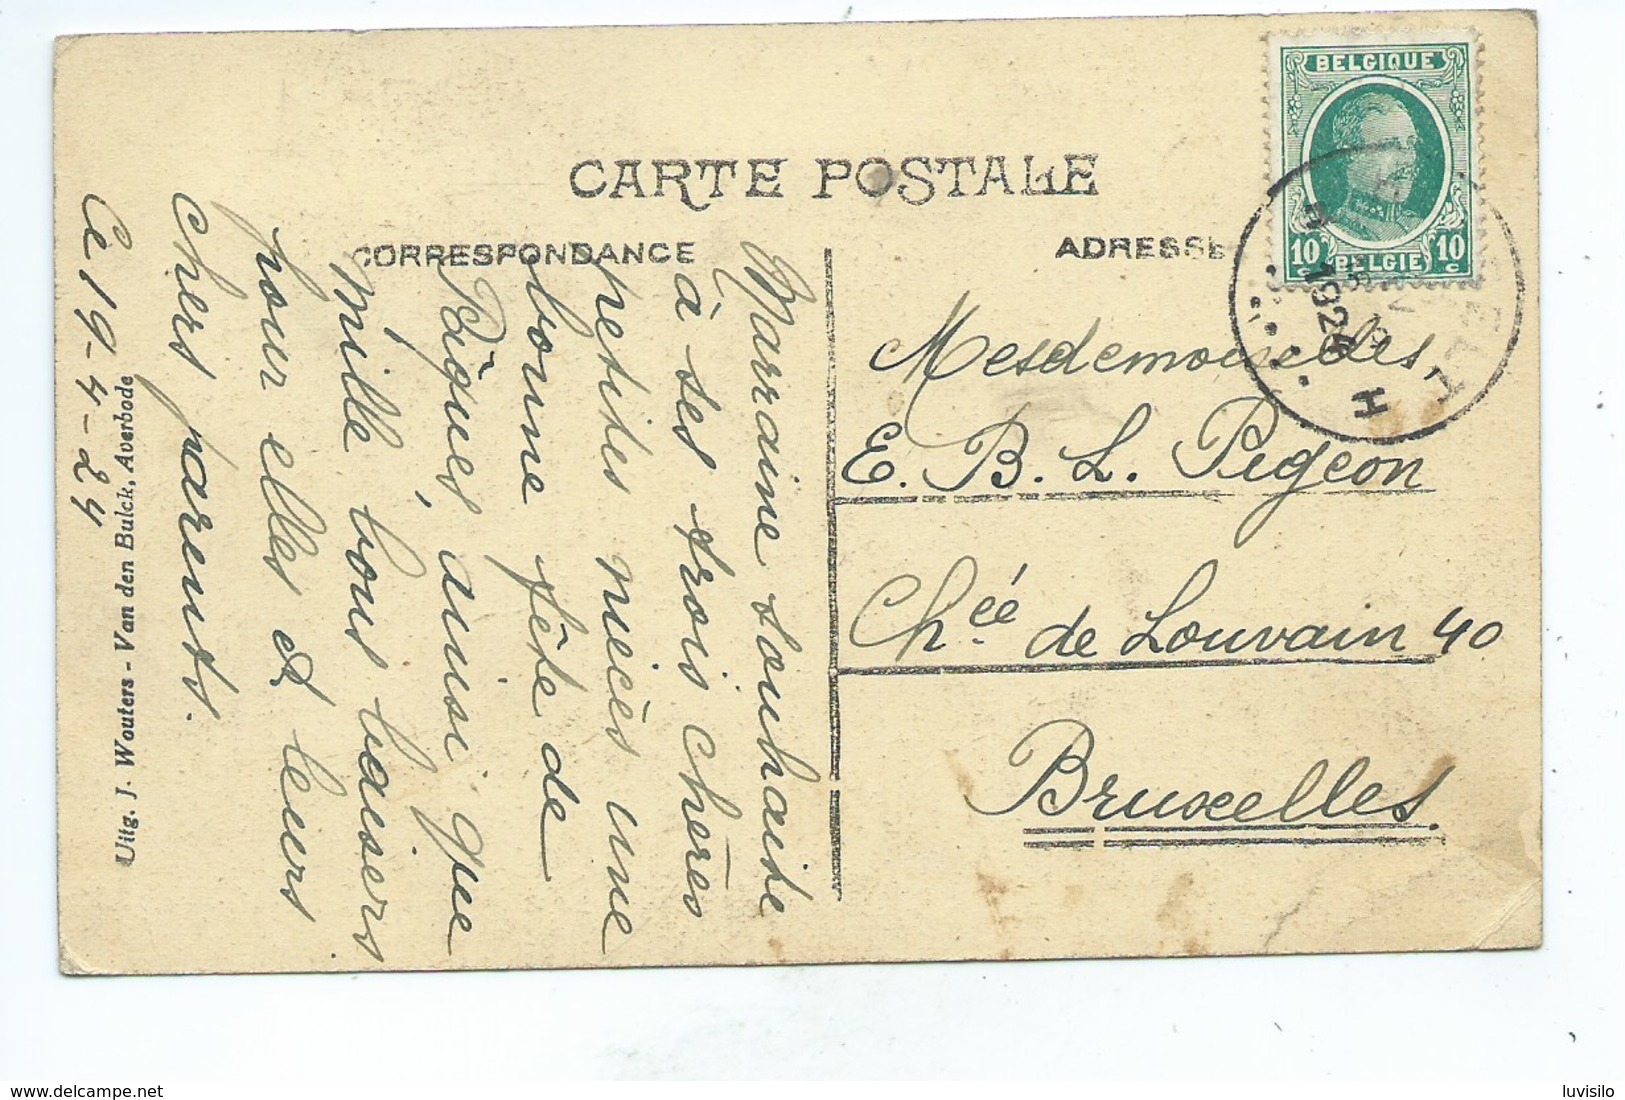 CARTE POSTALE
CORRESPONDANCE
ADRESSE
BELGIQUE
10 10
BELGIE
1924
H
Marraine souhaite
à ses trois chères
petites nièces une
bonne fête de
Pâques ainsi que
mille bons baisers
pour elles et leurs
chers parents.
Ce 19-4-24
Uitg. J. Wouters - Van den Bulck, Averbode
Mesdemoiselles,
E. B. L. Pigeon
Chée de Louvain 40
Bruxelles.
delcampe.net
luvisilo